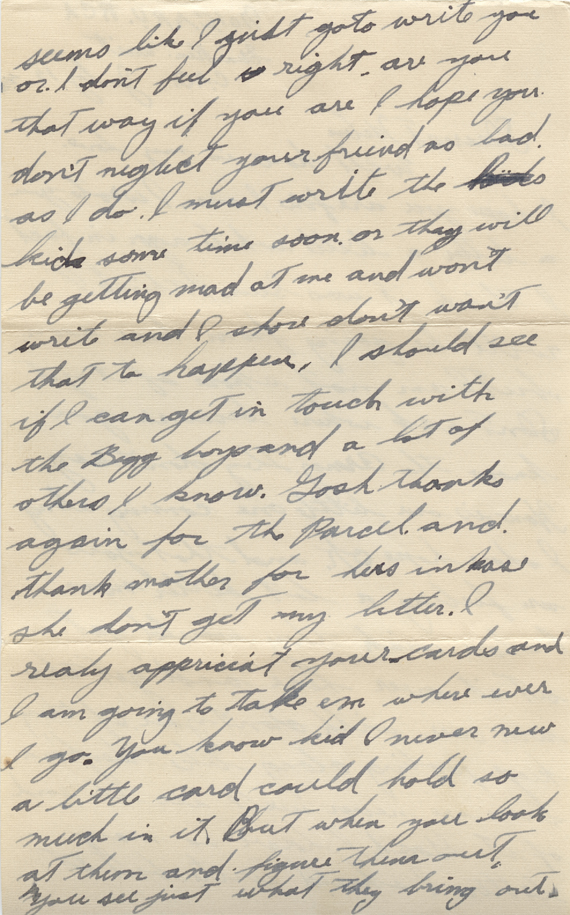 seems like I just goto write you
or. I don't feel right. are you
that way if you are I hope you
don't neglect your freind as bad.
as I do. I must write the
kids some time soon. or they will
be getting mad at me and won't
write and I shore don't won't
that to happen, I should see
if I can get in touch with
the Bigg boys and a lot of
others I know. Gosh thanks
again for the Parcel. and.
thank mother for hers in case
she don't get my letter. I
realy appriciat your cards and
I am going to take em where ever
I go. You know kid I never new
a little card could hold so
much in it. But when you look
at them and figure them out,
you see just what they bring out.